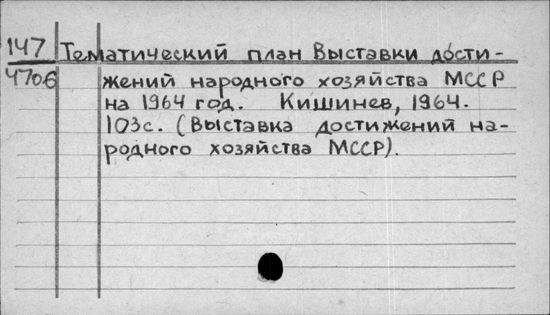 147 Тематический план Выставки дости-
4706 жений народного хозяйства МССР
на 1964 год. Кишинев, 1964.
103с. (Выставка достижений на-
родного хозяйства МССР).